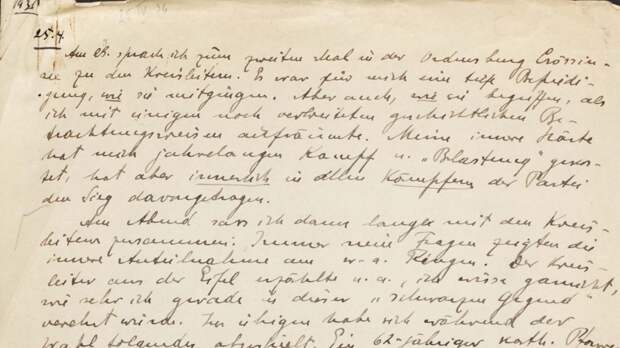 1936
25.4.
Am sprach ich zum zweiten Mal in der Ordensburg Crössin-
see zu den Kreisleitern. Es war für mich eine tiefe Befriedi-
gung, wie sie mitgingen. Aber auch, wie sie begriffen, als
ich mit einigen noch verbreiteten geschichtlichen Be-
trachtungsweisen aufräumte. Meine innere Härte
hat mich jahrelangen Kampf u. „Belastung" gekos-
tet, hat aber innerlich in allen Kämpfern der Partei
den Sieg davongetragen.
Am Abend sass ich dann lange mit den Kreis-
leitern zusammen. Immer neue Fragen zeigten die
innere Anteilnahme am Ringen. Der Kreis-
leiter aus der Eifel erzählte u. a., ich wisse garnicht,
wie sehr ich gerade in dieser „schwarzen Gegend"
verehrt würde. Im übrigen habe sich während der
Wahl folgendes abgespielt. Ein 62-jähriger kath.